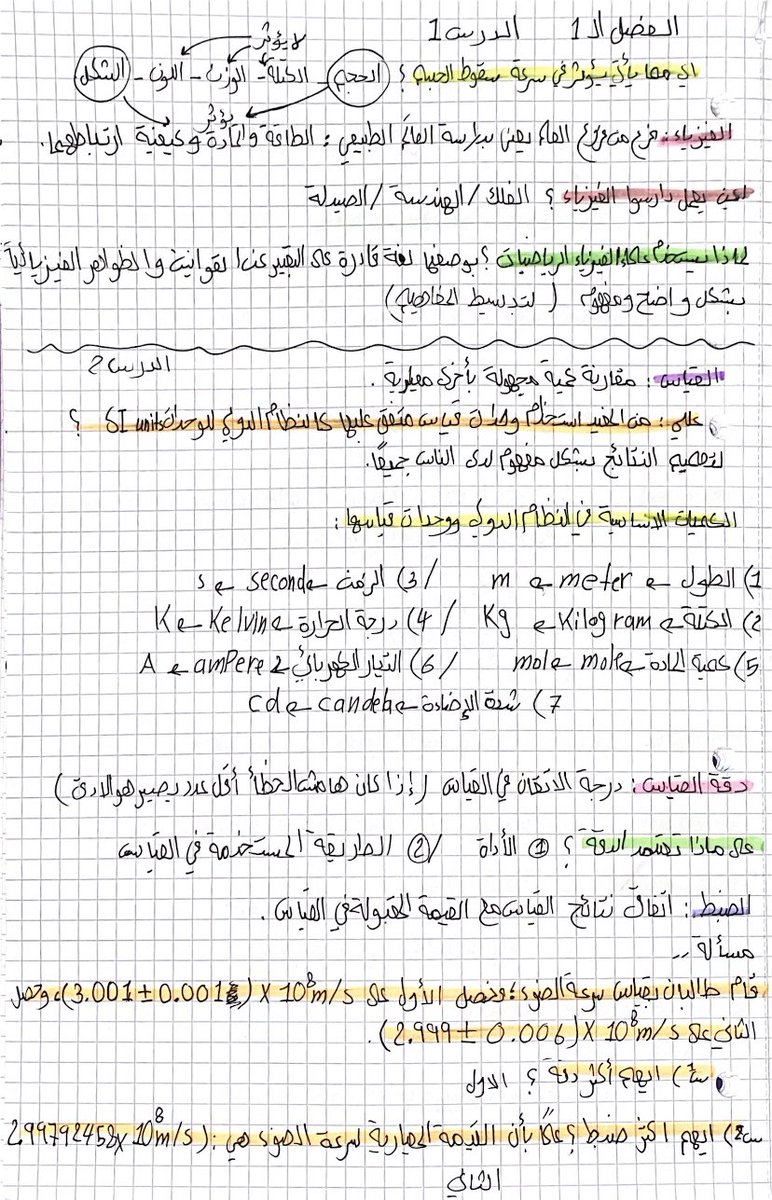 الفصل الـ 1 الدرس 1
لا يؤثر
اي مما يأتي يؤثر في سرعة سقوط الجسم ؟ الحجم - الكتلة - الوزن - اللون - الشكل
يؤثر
الفيزياء : فرع من فروع العلم يعنى بدراسة العالم الطبيعي : الطاقة والمادة وكيفية ارتباطهما .
اين يعمل دارسوا الفيزياء ؟ الفلك / الهندسة / الصيدلة
لماذا يستخدم علماء الفيزياء الرياضيات ؟ بوصفها لغة قادرة على التعبير عن القوانين والظواهر الفيزيائية
بشكل واضح ومفهوم ( لتبسيط المفاهيم )
الدرس 2
القياس : مقارنة كمية مجهولة بأخرى معلومة .
علل : من المفيد استخدام وحدات قياس متفق عليها كالنظام الدولي للوحدات SI units ؟
لتعميم النتائج بشكل مفهوم لدى الناس جميعًا .
الكميات الاساسية في النظام الدولي ووحدات قياسها :
1) الطول ← meter ← m / 3) الزمن ← second ← s
2) الكتلة ← Kilogram ← Kg / 4) درجة الحرارة ← Kelvin ← K
5) كمية المادة ← mole ← mol / 6) التيار الكهربائي ← ampere ← A
7) شدة الإضاءة ← candela ← cd
دقة القياس : درجة الاتقان في القياس ( إذا كان هامش الخطأ أقل عدد يصير هو الادق )
على ماذا تعتمد الدقة ؟ ① الأداة / ② الطريقة المستخدمة في القياس
الضبط : اتفاق نتائج القياس مع القيمة المقبولة في القياس .
مسألة --
قام طالبان بقياس سرعة الضوء ؛ وحصل الأول على (3.001 ± 0.001) × 10⁸ m/s ، وحصل
الثاني على (2.999 ± 0.006) × 10⁸ m/s .
س1) ايهم أكثر دقة ؟ الاول
س2) ايهم اكثر ضبط ؟ علمًا بأن القيمة المعيارية لسرعة الضوء هي : (2.99792458 × 10⁸ m/s)
الثاني